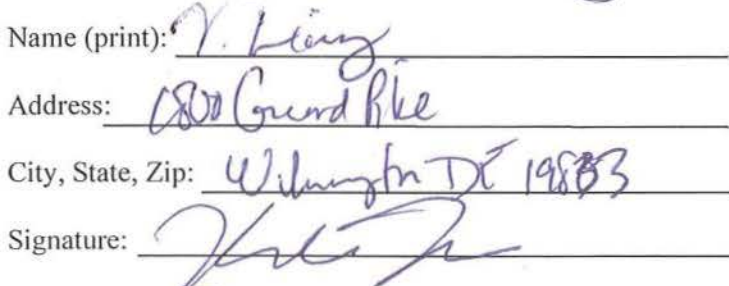 Name (print): V. Liang
Address: 1800 Concord Pike
City, State, Zip: Wilmington DE 19803
Signature: